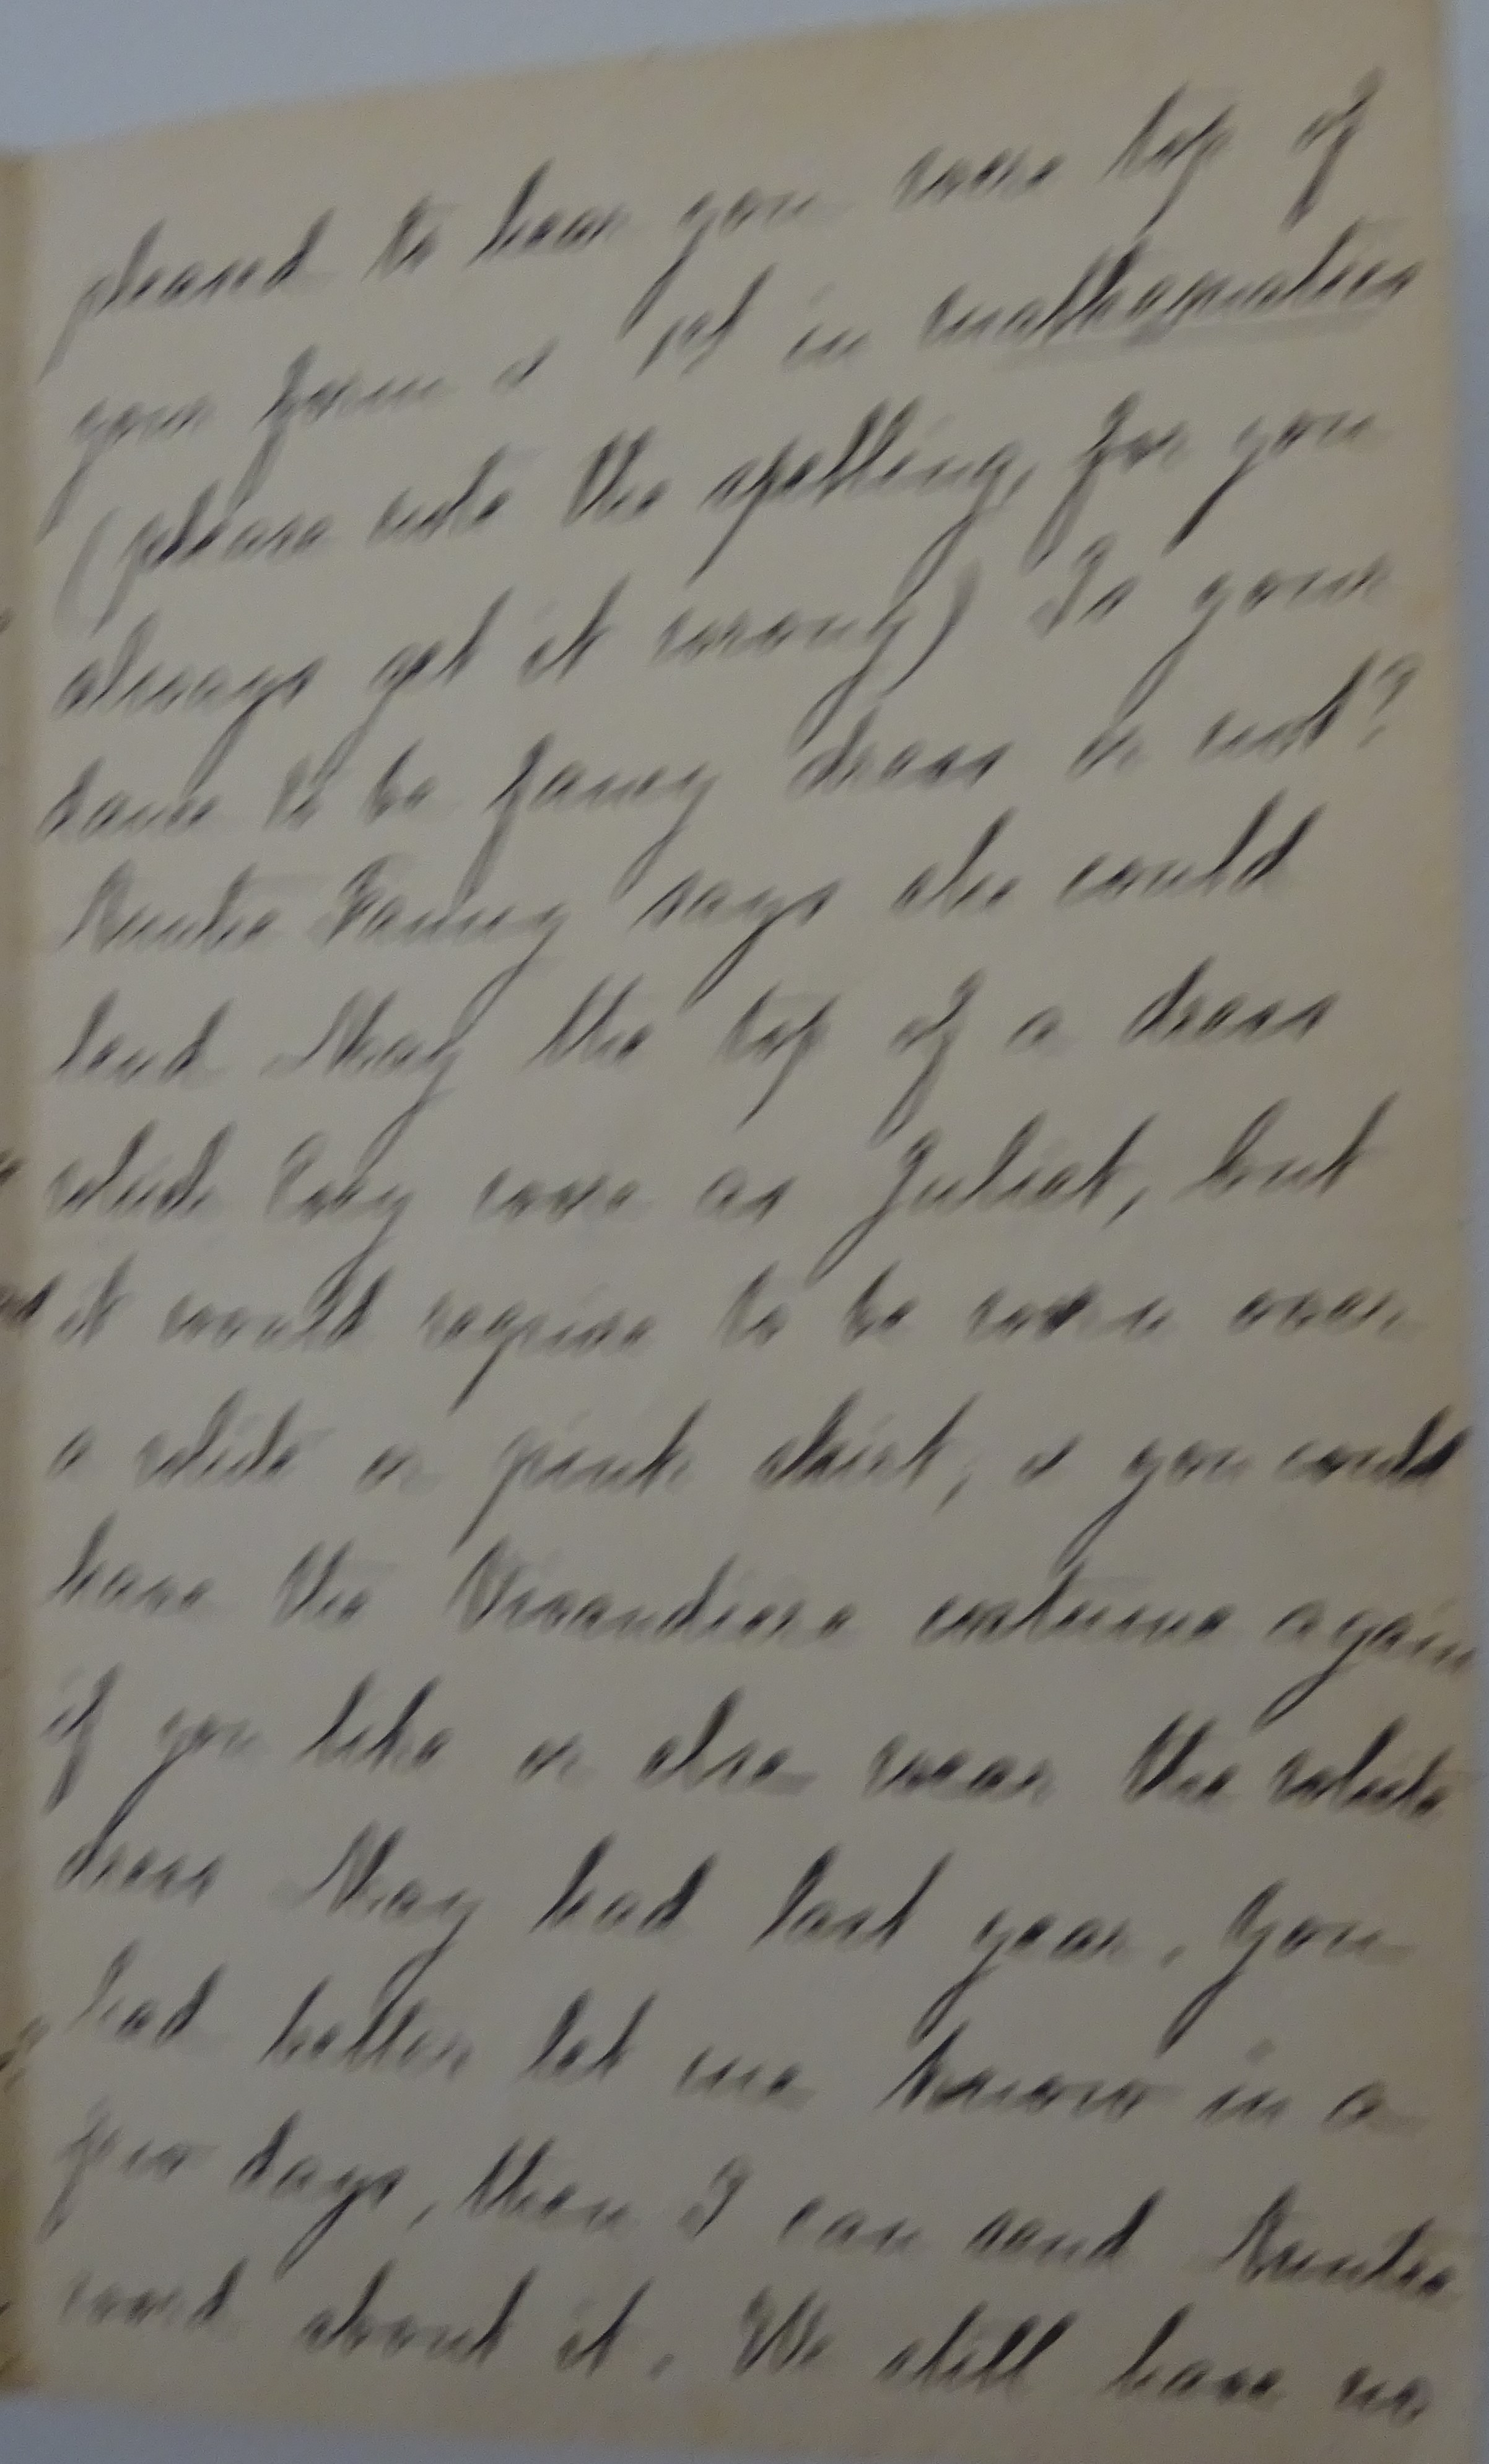 pleased to hear you were top of
your form & 1st in mathematics
(please note the spelling, for you
always get it wrong) Is your
dance to be fancy dress or not?
Auntie Fanny says she could
lend May the top of a dress
which wore as Juliet, but
it would require to be worn over
a white or pink skirt, & you could
have the Vivandiere costume again
if you like or else wear the white
dress May had last year. You
had better let me know in a
few days, then I can send Auntie
word about it. We still have no